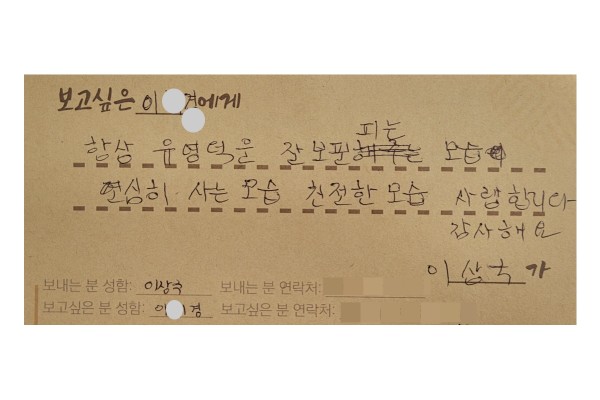 보고싶은 이 경에게
항상 유영덕을 잘 보필 피는 모습
열심히 사는 모습 친전한 모습 사랑합니다
감사해요
이상국 가
보내는 분 성함: 이상국 보내는 분 연락처:
보고싶은 분 성함: 이 경 보고싶은 분 연락처: